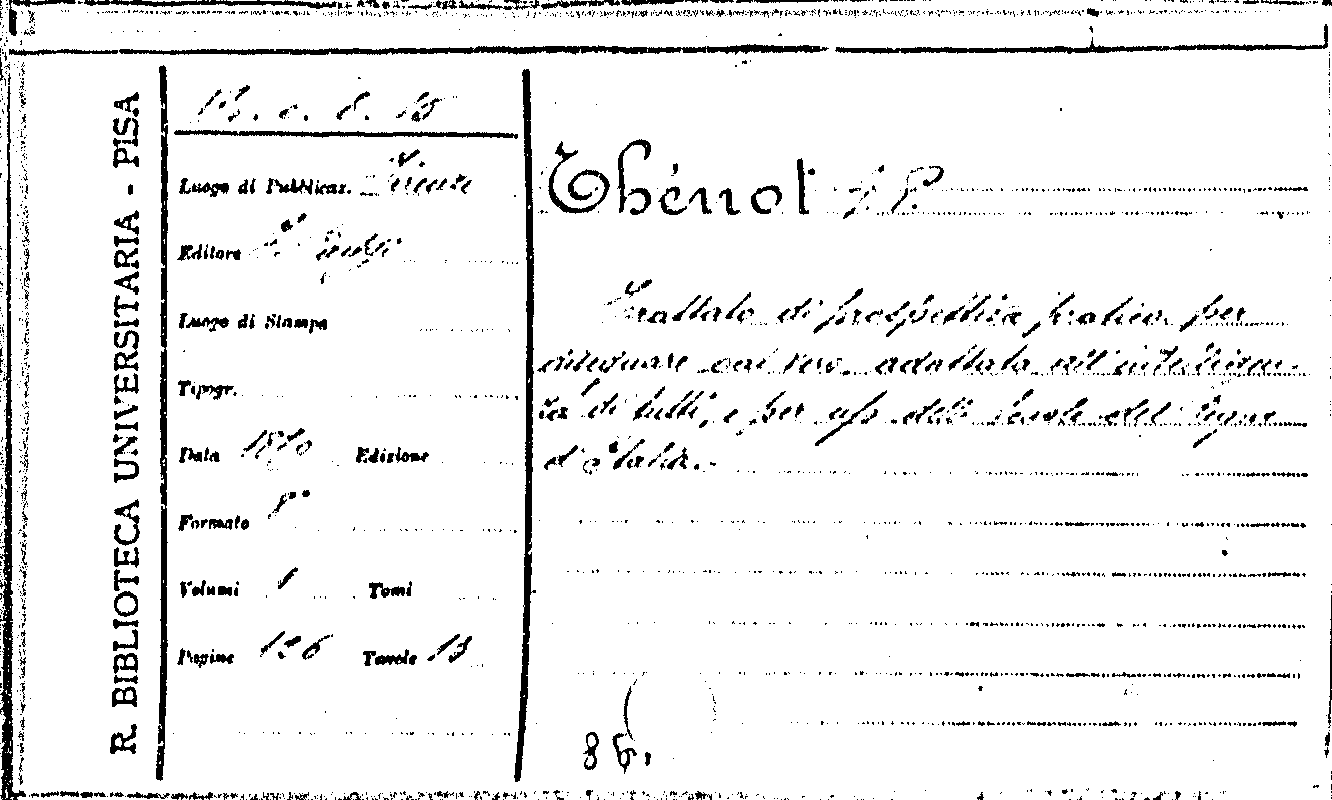 R. BIBLIOTECA UNIVERSITARIA - PISA
B. c. 8. 15
Luogo di Pubblicaz. Firenze
Editore
Luogo di Stampa
Tipogr.
Data 1870 Edizione
Formato 8°
Volumi 1 Tomi
Pagine 126 Tavole 13
Thénot J. P.
Trattato di prospettiva pratica per
disegnare dal vero, adattata all'intelligen-
za di tutti, e per uso delle Scuole del Regno
d'Italia.
86.